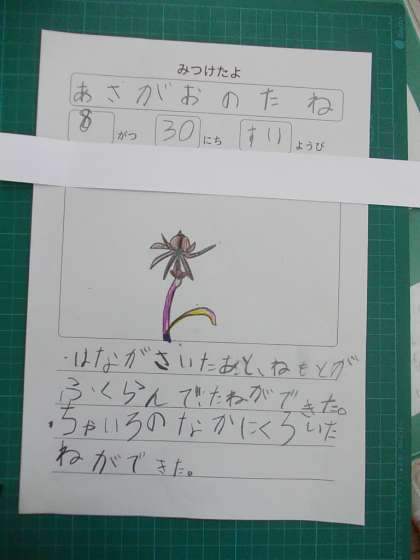 みつけたよ
あさがおのたね
8がつ 30にち すいようび
・はながさいたあと、ねもとが
ふくらんで、たねができた。
・ちゃいろのなかにくろいた
ねができた。